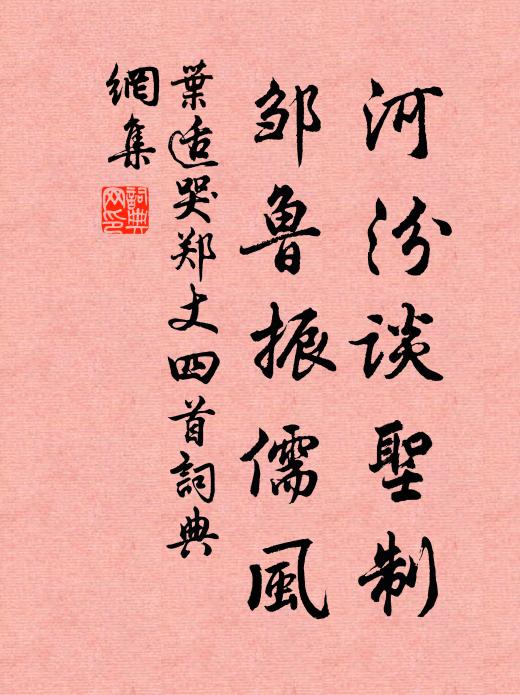 河汾談聖制
邹魯振儒風
葉适哭郑丈四首詞典
網集
詞典
网印